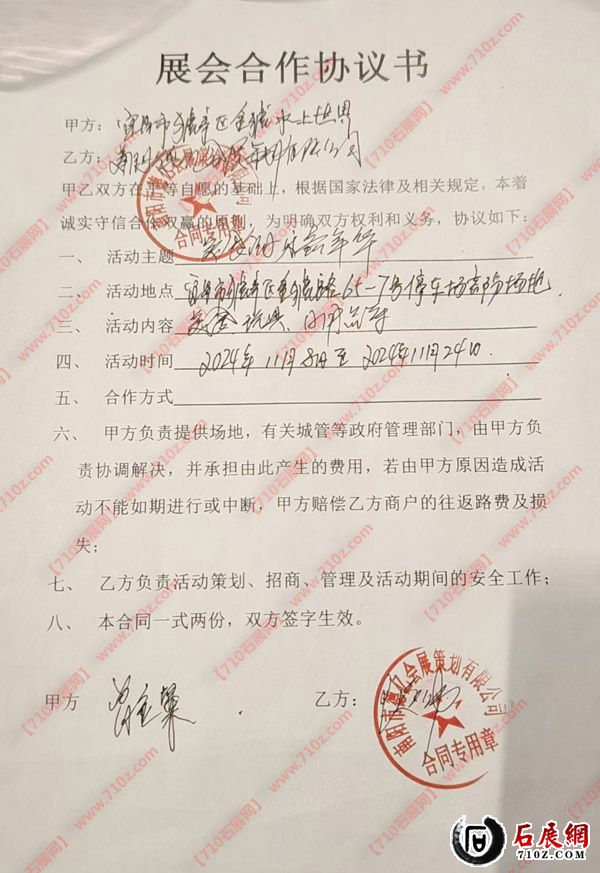 展会合作协议书
甲方：宜昌市猇亭区金猇水上世界
乙方：
甲乙双方在平等自愿的基础上，根据国家法律及相关规定，本着
诚实守信合作双赢的原则，为明确双方权利和义务，协议如下：
一、 活动主题 美食 嘉年华
二、 活动地点 宜昌市猇亭区金猇路65-7号停车场 场地
三、 活动内容 美食 玩具、日用品等
四、 活动时间 2024年11月8日至2024年11月24日.
五、 合作方式
六、 甲方负责提供场地，有关城管等政府管理部门，由甲方负
责协调解决，并承担由此产生的费用，若由甲方原因造成活
动不能如期进行或中断，甲方赔偿乙方商户的往返路费及损
失；
七、 乙方负责活动策划、招商、管理及活动期间的安全工作；
八、 本合同一式两份，双方签字生效。
甲方 乙方：
会展策划有限公司
合同专用章
【710石展网】www.710z.com
石展網
710Z.COM